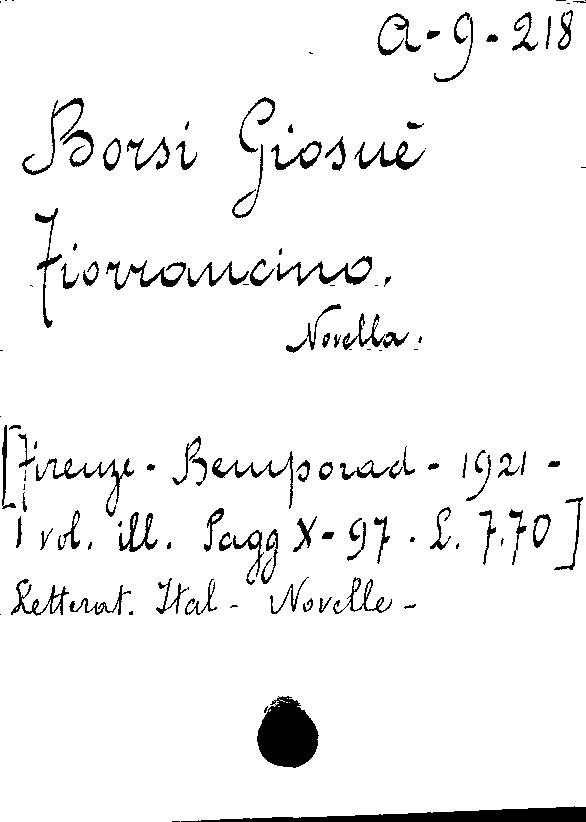 A-9-218
Borsi Giosuè
Fiorrancino.
Novella.
[Firenze - Bemporad - 1921 -
1 vol. ill. Pagg X-97. L. 7,70]
Letterat. Ital - Novelle -